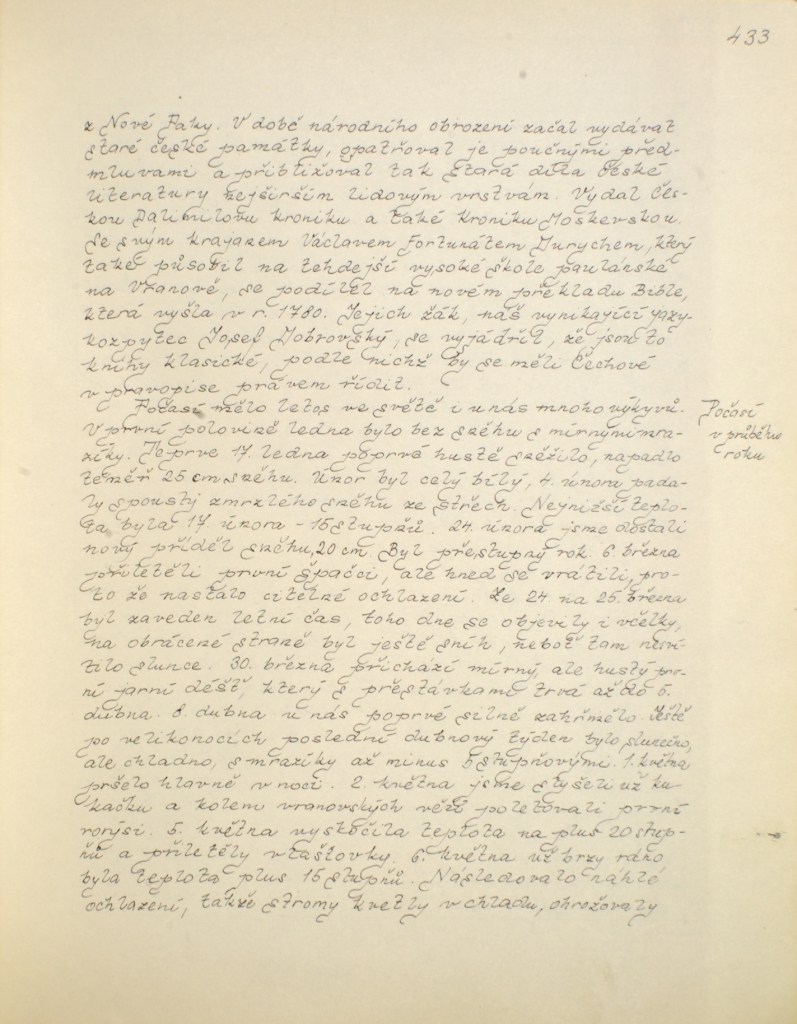 433
z Nové Paky. V době národního obrození začal vydávat
staré české památky, opatřoval je poučnými před-
mluvami a přibližoval tak stará díla české
literatury nejširším lidovým vrstvám. Vydal Čes-
kou Dalimilovu kroniku a také kroniku Moskevskou.
Se svým krajanem Václavem Fortunátem Durychem, který
také působil na tehdejší vysoké škole paulánské
na Vranově, se podílel na novém překladu Bible,
která vyšla v r. 1780. Jejich žák, náš vynikající jazy-
kozpytec Josef Dobrovský, se vyjádřil, že jsou to
knihy klasické, podle nichž by se měli Čechové
v pravopise právem řídit.
Počasí mělo letos ve světě i u nás mnoho výkyvů.
Počasí
v průběhu
roku
V první polovině ledna bylo bez sněhu s mírnými mra-
zíky. Teprve 17. ledna poprvé hustě sněžilo, napadlo
téměř 25 cm sněhu. Únor byl celý bílý, 4. února pada-
ly spousty zmrzlého sněhu ze střech. Nejnižší teplo-
ta byla 17. února - 15 stupňů. 24. února jsme dostali
nový příděl sněhu, 20 cm. Byl přestupný rok. 6. března
přiletěli první špačci, ale hned se vrátili, pro-
to že nastalo citelné ochlazení. Ze 24. na 25. března
byl zaveden letní čas, toho dne se objevily i včelky,
na obrácené straně byl ještě sníh, neboť tam nesví-
tilo slunce. 30. března přichází mírný, ale hustý prv-
ní jarní déšť, který s přestávkami trvá až do 5.
dubna. 8. dubna u nás poprvé silně zahřmělo. Ještě
po velikonocích poslední dubnový týden bylo slunečno,
ale chladno, s mrazíky až minus 5 stupňovými. 1. května
pršelo hlavně v noci. 2. května jsme slyšeli už ku-
kačku a kolem vranovských věží poletovali první
rorýsi. 5. května vyskočila teplota na plus 20 stup-
ňů a přiletěly vlaštovky. 6. května už brzy ráno
byla teplota plus 15 stupňů. Následovalo náhlé
ochlazení, takže stromy kvetly v chladu, ohrožovaly